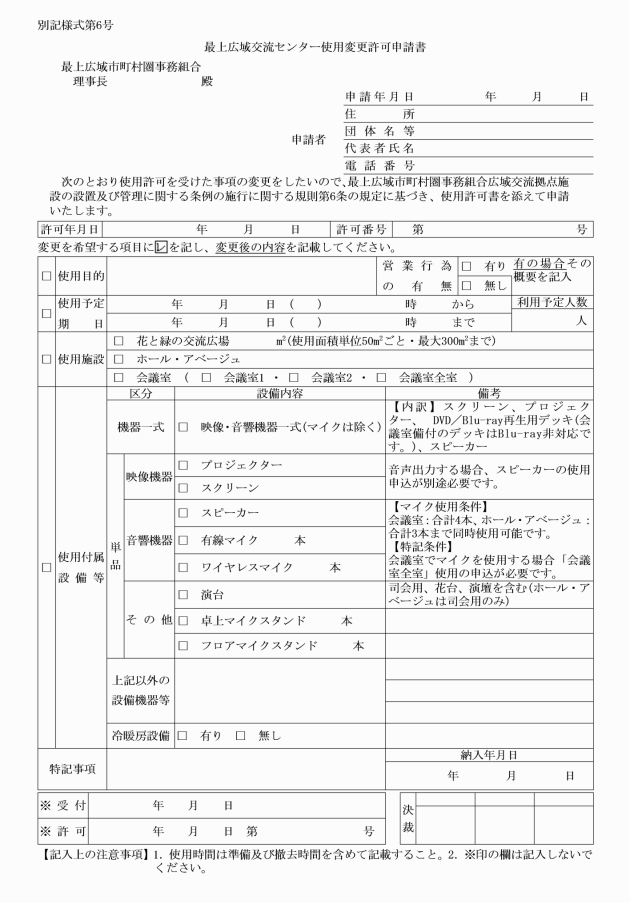 別記様式第6号
最上広域交流センター使用変更許可申請書
最上広域市町村圏事務組合
理事長　　　　　　　　殿
申請年月日　　　　　年　　　月　　　日
住　　　所
申請者　団体名等
代表者氏名
電話番号
次のとおり使用許可を受けた事項の変更をしたいので、最上広域市町村圏事務組合広域交流拠点施
設の設置及び管理に関する条例の施行に関する規則第6条の規定に基づき、使用許可書を添えて申請
いたします。
許可年月日　　　　　年　　　月　　　日　許可番号　第　　　　　　　　号
変更を希望する項目に☑を記し、変更後の内容を記載してください。
□ 使用目的　営業行為の有無　□ 有り　□ 無し　有の場合その概要を記入
□ 使用予定期日　年　　月　　日（　）　　時　から　利用予定人数
年　　月　　日（　）　　時　まで　人
□ 使用施設　□ 花と緑の交流広場　　　㎡(使用面積単位50㎡ごと・最大300㎡まで)
□ ホール・アベージュ
□ 会議室　(　□ 会議室1 ・ □ 会議室2 ・ □ 会議室全室　)
□ 使用付属設備等　区分　設備内容　備考
機器一式　□ 映像・音響機器一式(マイクは除く)
【内訳】スクリーン、プロジェク
ター、 DVD／Blu-ray再生用デッキ(会
議室備付のデッキはBlu-ray非対応で
す。)、スピーカー
単品　映像機器　□ プロジェクター
□ スクリーン
音声出力する場合、スピーカーの使用
申込が別途必要です。
音響機器　□ スピーカー
□ 有線マイク　　　本
□ ワイヤレスマイク　　　本
【マイク使用条件】
会議室:合計4本、ホール・アベージュ:
合計3本まで同時使用可能です。
【特記条件】
会議室でマイクを使用する場合「会議
室全室」使用の申込が必要です。
その他　□ 演台
司会用、花台、演壇を含む(ホール・ア
ベージュは司会用のみ)
□ 卓上マイクスタンド　　　本
□ フロアマイクスタンド　　　本
上記以外の
設備機器等
冷暖房設備　□ 有り　□ 無し
特記事項　納入年月日
年　　　月　　　日
※ 受付　　　年　　月　　日　決裁
※ 許可　　　年　　月　　日　第　　　　　　号
【記入上の注意事項】1. 使用時間は準備及び撤去時間を含めて記載すること。2. ※印の欄は記入しないで
ください。